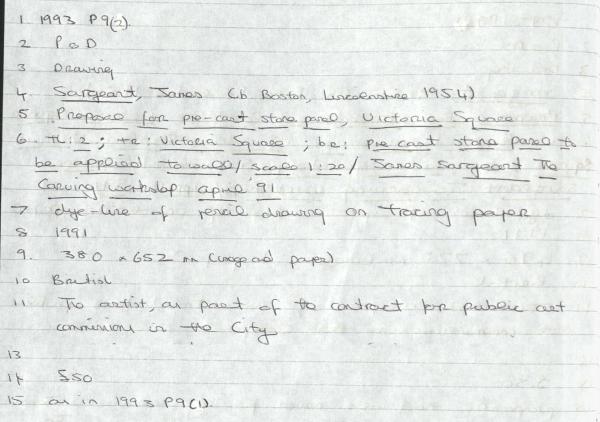 1 1993 P9(2).
2 P & D
3 Drawing
4. Sargeant, James (b Boston, Lincolnshire 1954)
5 Proposal for pre-cast stone panel, Victoria Square
6. TL: 2 ; tr: Victoria Square ; br: pre cast stone panel to
be applied to wall/ scale 1:20/ James Sargeant The
Carving workshop april '91
7 dye-line of pencil drawing on tracing paper
8 1991
9. 380 x 652 mm (image and paper)
10 British
11 The artist, as part of the contract for public art
commissions in the City
13
14 550
15 as in 1993 P9(1).